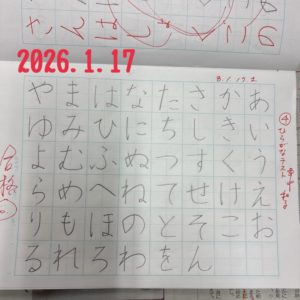 2026.1.17
8.1.17.土
④ひらがなテスト
あいうえお
かきくけこ
さしすせそん
たちつてとを
なにぬねのわ
はひふへほろ
まみむめもれ
やゆよらりる
合格